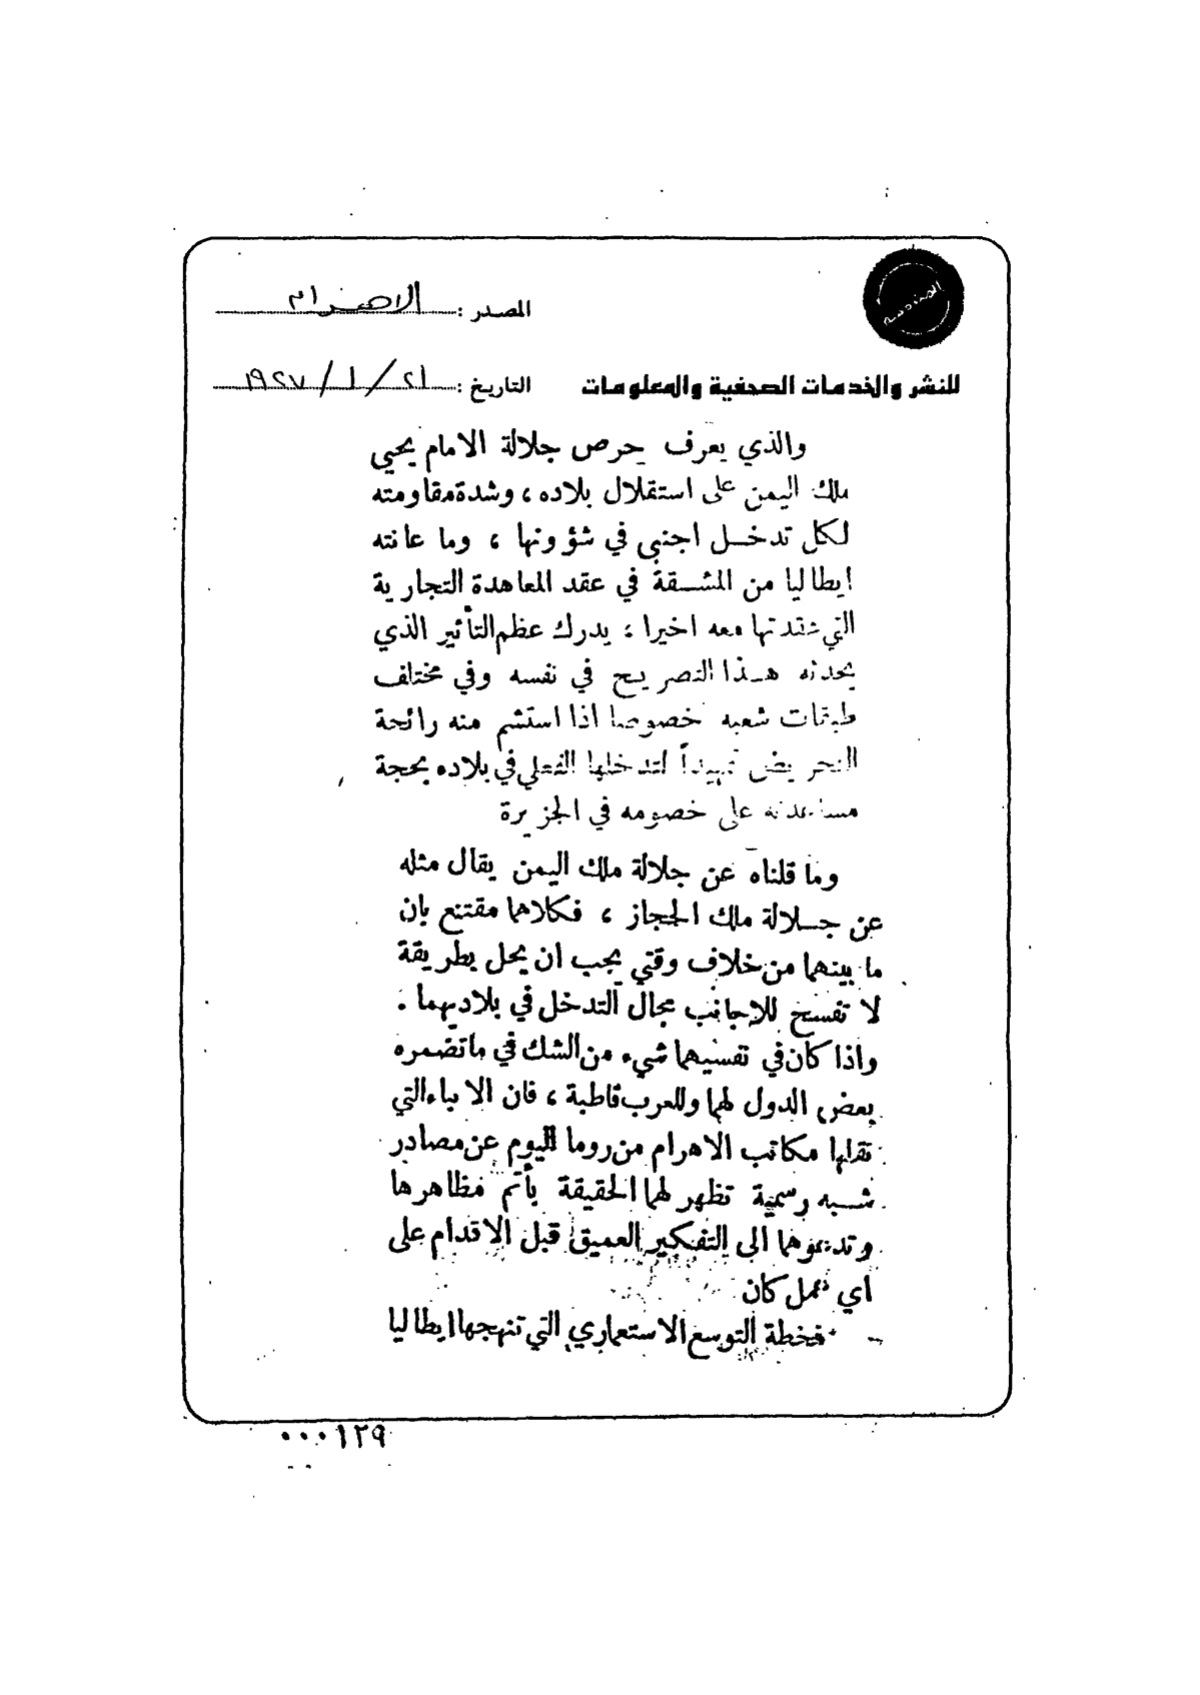 المصدر : الاهرام
التاريخ : ٢١ / ١ / ١٩٢٧
للنشر والخدمات الصحفية والمعلومات
والذي يعرف حرص جلالة الامام يحيي
ملك اليمن على استقلال بلاده ، وشدة مقاومته
لكل تدخل اجنبي في شؤونها ، وما عانته
ايطاليا من المشقة في عقد المعاهدة التجارية
التي عقدتها معه اخيرا ؛ يدرك عظم التأثير الذي
يحدثه هذا التصريح في نفسه وفي مختلف
طبقات شعبه خصوصا اذا استشم منه رائحة
التحريض تمهيداً لتدخلها الفعلي في بلاده بحجة
مساعدته على خصومه في الجزيرة
وما قلناه عن جلالة ملك اليمن يقال مثله
عن جلالة ملك الحجاز ، فكلاهما مقتنع بان
ما بينهما من خلاف وقتي يجب ان يحل بطريقة
لا تفسح للاجانب مجال التدخل في بلاديهما .
واذا كان في نفسيهما شيء من الشك في ما تضمره
بعض الدول لهما وللعرب قاطبة ، فان الانباء التي
نقلها مكاتب الاهرام من روما اليوم عن مصادر
شبه رسمية تظهر لهما الحقيقة بأتم مظاهرها
وتدعوهما الى التفكير العميق قبل الاقدام على
اي عمل كان
فخطة التوسع الاستعماري التي تنهجها ايطاليا
٠٠٠١٢٩